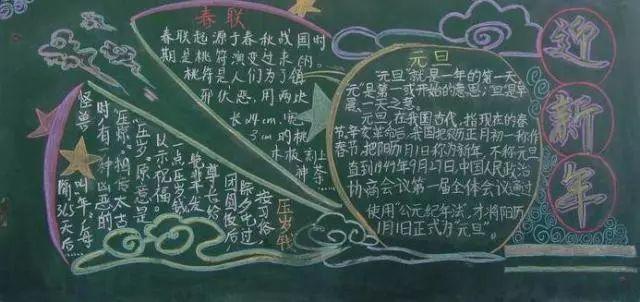 迎新年
春联
春联起源于春秋战国时
期是桃符演变过来的。
桃符是人们为了镇
邪伏恶,用两块
长24cm,宽
3cm的桃
木板刻上
神荼
元旦
"元旦"就是一年的第一天
"元"是第一或开始的意思;旦是早
晨,一天之意。
元旦,在我国古代,指现在的春
节,辛亥革命后,我国把阴历正月初一称作
春节,把阳历1月1日称为新年,不称元旦
直到1949年9月27日,中国人民政治
协商会议第一届全体会议通过
使用"公元纪年法",才将阳历
1月1日正式为"元旦"。
压岁钱
按习俗,
除夕吃过
团圆饭后
尊长给
晚辈
一点压岁钱
以示祝福。
"压岁"原意是
"压祟",相传太古
时有一种凶恶的
怪兽,叫"年",每
隔365天后